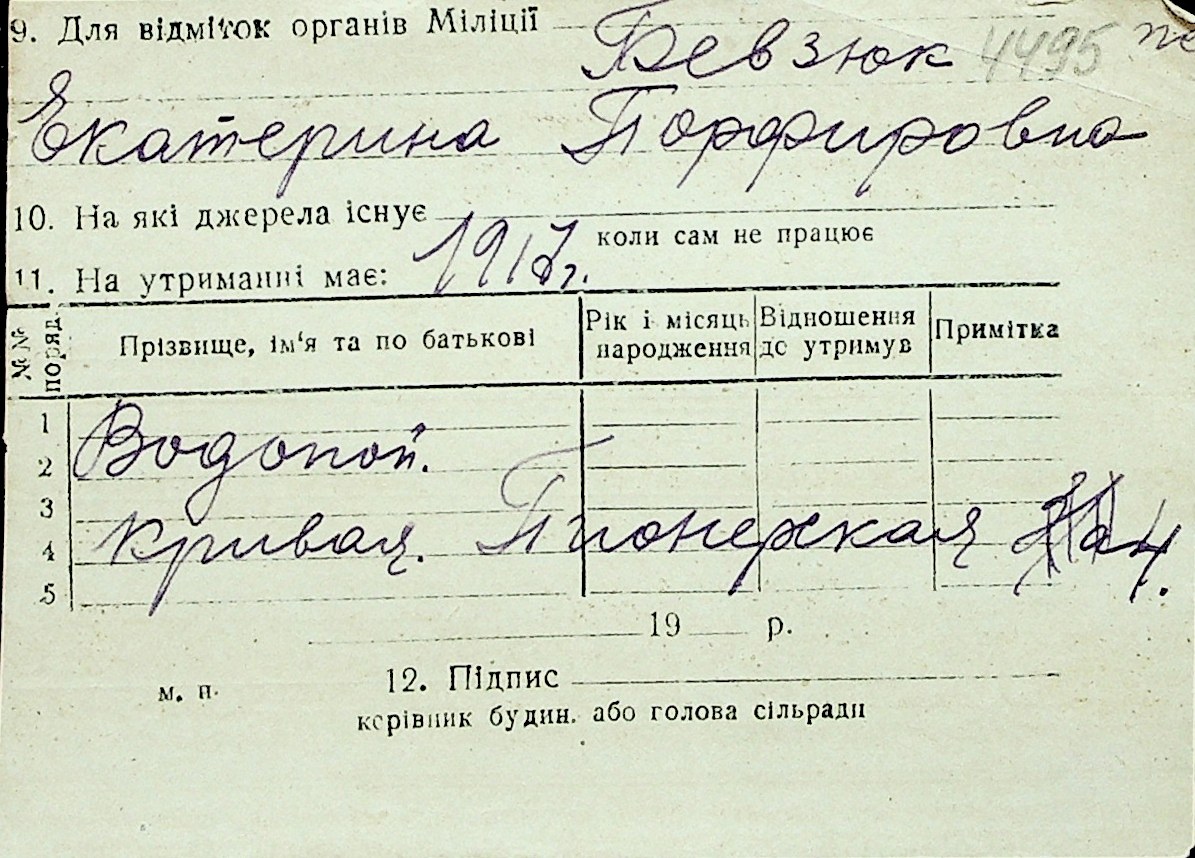 9. Для відміток органів Міліції
Бевзюк 4495
Екатерина Порфировна
10. На які джерела існує
коли сам не працює
1917 г.
11. На утриманні має:
№№ поряд.
Прізвище, ім'я та по батькові
Рік і місяць народження
Відношення до утримув
Примітка
1
Водопой.
2
3
Кривая. Пионерская 4.
4
5
19 р.
м. п.
12. Підпис
керівник будин. або голова сільради